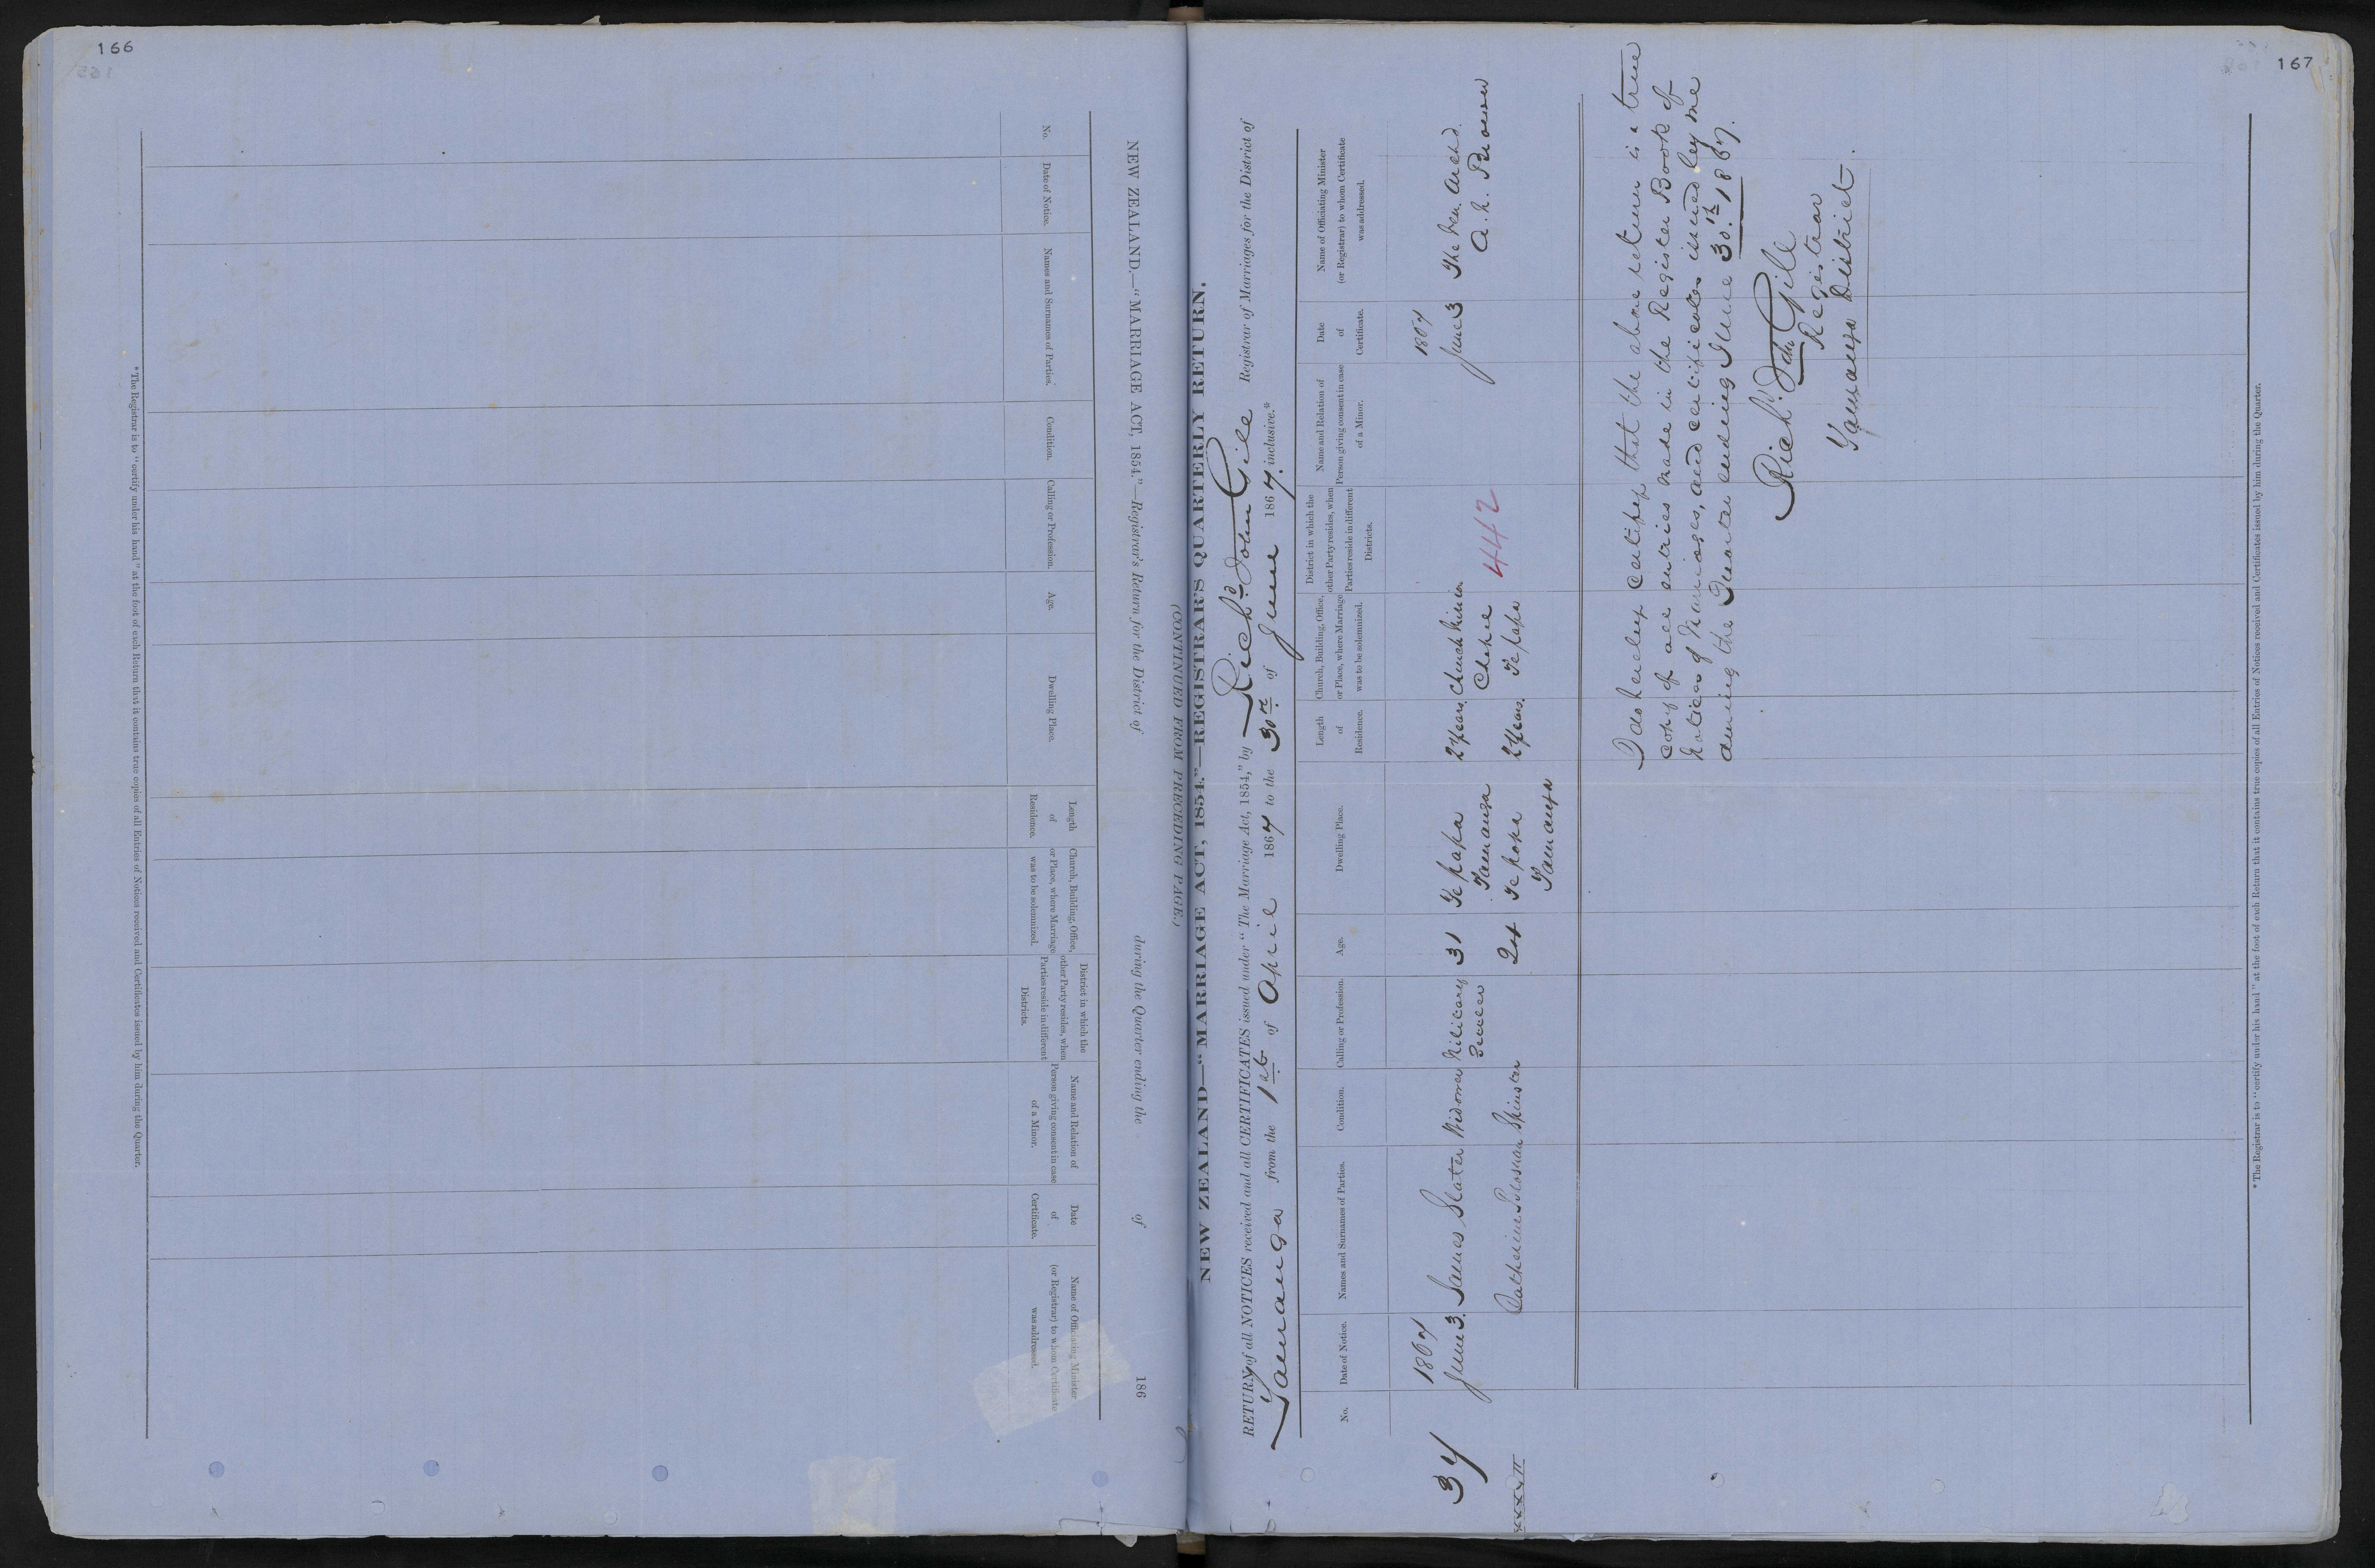 166
NEW ZEALAND.—"MARRIAGE ACT, 1854."—Registrar's Return for the District of during the Quarter ending the of 186
(CONTINUED FROM PRECEDING PAGE.)
No.
Date of Notice.
Names and Surnames of Parties.
Condition.
Calling or Profession.
Age.
Dwelling Place.
Length
of
Residence.
Church, Building, Office,
or Place, where Marriage
was to be solemnized.
District in which the
other Party resides, when
Parties reside in different
Districts.
Name and Relation of
Person giving consent in case
of a Minor.
Date
of
Certificate.
Name of Officiating Minister
(or Registrar) to whom Certificate
was addressed.
*The Registrar is to "certify under his hand" at the foot of each Return that it contains true copies of all Entries of Notices received and Certificates issued by him during the Quarter.
167
NEW ZEALAND—"MARRIAGE ACT, 1854."—REGISTRAR'S QUARTERLY RETURN.
RETURN of all NOTICES received and all CERTIFICATES issued under "The Marriage Act, 1854," by Richd. John Gill Registrar of Marriages for the District of
Tauranga from the 1st of April 1867 to the 30th of June 1867 inclusive.*
No.
Date of Notice.
Names and Surnames of Parties.
Condition.
Calling or Profession.
Age.
Dwelling Place.
Length
of
Residence.
Church, Building, Office,
or Place, where Marriage
was to be solemnized.
District in which the
other Party resides, when
Parties reside in different
Districts.
Name and Relation of
Person giving consent in case
of a Minor.
Date
of
Certificate.
Name of Officiating Minister
(or Registrar) to whom Certificate
was addressed.
1867 1867
37 June 3. James Slater Widower Military 31 Te papa 2 years Church Mission June 3 The Ven. Archd.
Settler Tauranga Chapel 442 A. N. Brown
xxxvii Catherine Spinster 24 Te papa 2 years. Te papa
Tauranga
I do hereby certify that the above return is a true
copy of all entries made in the Register Book of
Notices of Marriages, and certificates issued by me
during the Quarter ending June 30.th 1867.
Richd. Jn. Gill
Registrar
Tauranga District.
*The Registrar is to "certify under his hand" at the foot of each Return that it contains true copies of all Entries of Notices received and Certificates issued by him during the Quarter.